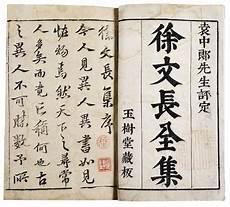 袁中郎先生評定
徐文長全集
玉樹堂藏板
徐文長集序
今人見異人異書如見
怪物焉然天下之尋
人多矣而竟已何也
之異人不可勝數予所